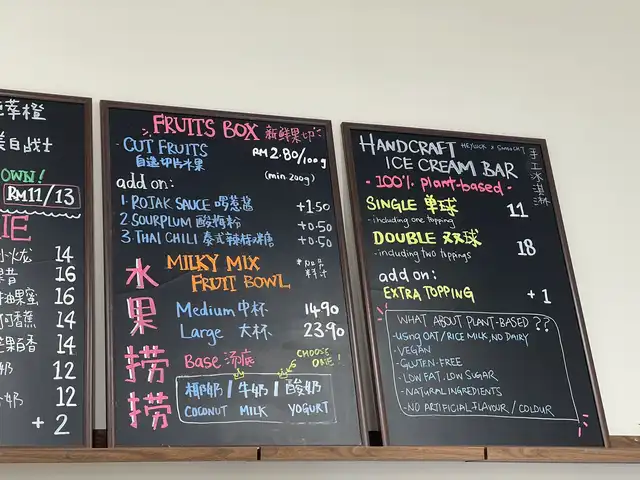 OWN!
RM11/13
14
16
16
14
14
12
12
+2
FRUITS BOX 新鲜果切
CUT FRUITS RM2.80/100g
自选切片水果 (min.200g)
add on:
1. ROJAK SAUCE 啰惹酱 +1.50
2. SOURPLUM 酸梅粉 +0.50
3. THAI CHILI 泰式辣椒糖 +0.50
水果捞捞
MILKY MIX
FRUIT BOWL
Medium 中杯 14.90
Large 大杯 23.90
Base 汤底 CHOOSE ONE!
椰奶 / 牛奶 / 酸奶
COCONUT MILK YOGURT
HANDCRAFT
ICE CREAM BAR
手工冰淇淋
- 100% plant-based -
SINGLE 单球 11
- including one topping
DOUBLE 双球 18
- including two toppings
add on:
EXTRA TOPPING +1
WHAT ABOUT PLANT-BASED ??
- USING OAT/RICE MILK, NO DAIRY
- VEGAN
- GLUTEN-FREE
- LOW FAT, LOW SUGAR
- NATURAL INGREDIENTS
- NO ARTIFICIAL FLAVOUR / COLOUR